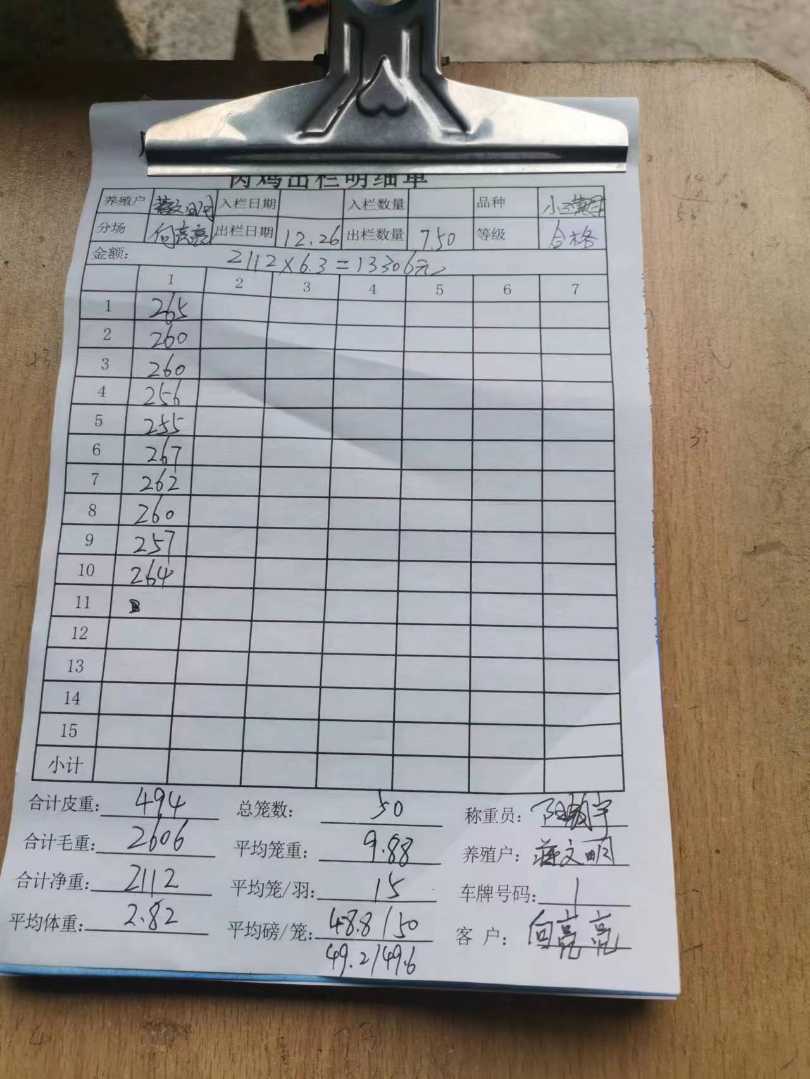 肉鸡出栏明细单
养殖户 蒋文明 入栏日期 入栏数量 品种
分场 向亮亮 出栏日期 12.26 出栏数量 750 等级 合格
金额: 2112×6.3=13306元
1 2 3 4 5 6 7
1 265
2 260
3 260
4 256
5 255
6 267
7 262
8 260
9 257
10 264
11
12
13
14
15
小计
合计皮重: 494 总笼数: 50 称重员:
合计毛重: 2606 平均笼重: 9.88 养殖户: 蒋文明
合计净重: 2112 平均笼/羽: 15 车牌号码: 1
平均体重: 2.82 平均磅/笼: 48.8/50 客户: 向亮亮
49.2/49.6